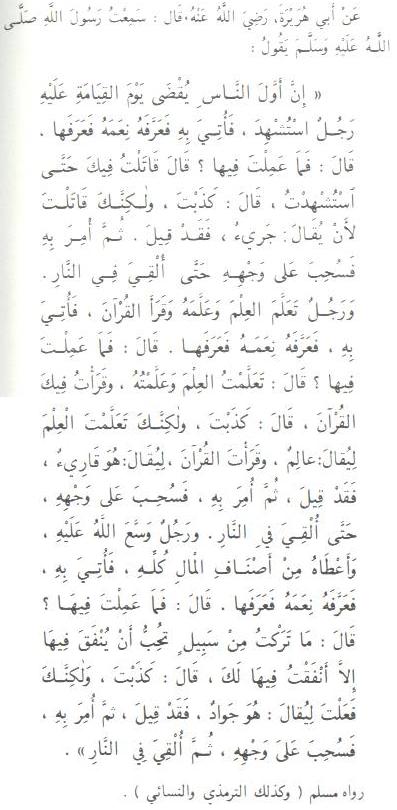 عَنْ أَبي هُرَيْرَةَ، رَضِيَ اللَّهُ عَنْهُ، قَال : سَمِعْتُ رَسُولَ اللَّهِ صَلَّى
اللَّهُ عَلَيْهِ وَسَلَّمَ يَقُولُ :
« إِنَّ أَوَّلَ النَّاسِ يُقْضَى يَوْمَ القِيَامَةِ عَلَيْهِ
رَجُلٌ اسْتُشْهِدَ ، فَأُتِيَ بِهِ فَعَرَّفَهُ نِعَمَهُ فَعَرَفَها ،
قَالَ : فَمَا عَمِلْتَ فِيها ؟ قَالَ قَاتَلْتُ فِيكَ حَتَّى
اسْتُشْهِدْتُ ، قَالَ : كَذَبْتَ ، ولٰكِنَّكَ قَاتَلْتَ
لأَنْ يُقَالَ : جَرِيءٌ ، فَقَدْ قِيلَ . ثُمَّ أُمِرَ بِهِ
فَسُحِبَ عَلى وَجْهِهِ حَتَّى أُلْقِيَ فِي النَّارِ .
وَرَجُلٌ تَعَلَّمَ العِلْمَ وَعَلَّمَهُ وَقَرَأَ القُرْآنَ ، فَأُتِيَ
بِهِ ، فَعَرَّفَهُ نِعَمَهُ فَعَرَفَها . قَالَ : فَمَا عَمِلْتَ
فِيها ؟ قَالَ : تَعَلَّمْتُ العِلْمَ وَعَلَّمْتُهُ ، وَقَرَأْتُ فِيكَ
القُرْآنَ ، قَالَ : كَذَبْتَ ، ولٰكِنَّكَ تَعَلَّمْتَ الْعِلْمَ
لِيُقَالَ: عَالِمٌ ، وَقَرَأْتَ القُرْآنَ ، لِيُقَالَ: هُوَ قَارِيءٌ ،
فَقَدْ قِيلَ ، ثُمَّ أُمِرَ بِهِ ، فَسُحِبَ عَلى وَجْهِهِ ،
حَتَّى أُلْقِيَ في النَّارِ . وَرَجُلٌ وَسَّعَ اللَّهُ عَلَيْهِ ،
وَأَعْطَاهُ مِنْ أَصْنَافِ الْمَالِ كُلِّهِ ، فَأُتِيَ بِهِ ،
فَعَرَّفَهُ نِعَمَهُ فَعَرَفَها . قَالَ : فَمَا عَمِلْتَ فِيهَا ؟
قَالَ : مَا تَرَكْتُ مِنْ سَبِيلٍ تُحِبُّ أَنْ يُنْفَقَ فِيهَا
إِلاَّ أَنْفَقْتُ فِيهَا لَكَ ، قَالَ : كَذَبْتَ ، وَلٰكِنَّكَ
فَعَلْتَ لِيُقَالَ : هُوَ جَوادٌ ، فَقَدْ قِيلَ ، ثمَّ أُمِرَ بِهِ ،
فَسُحِبَ عَلَى وَجْهِهِ ، ثُمَّ أُلْقِيَ فِي النَّارِ » .
رواه مسلم ( وكذلك الترمذي والنسائي ) .